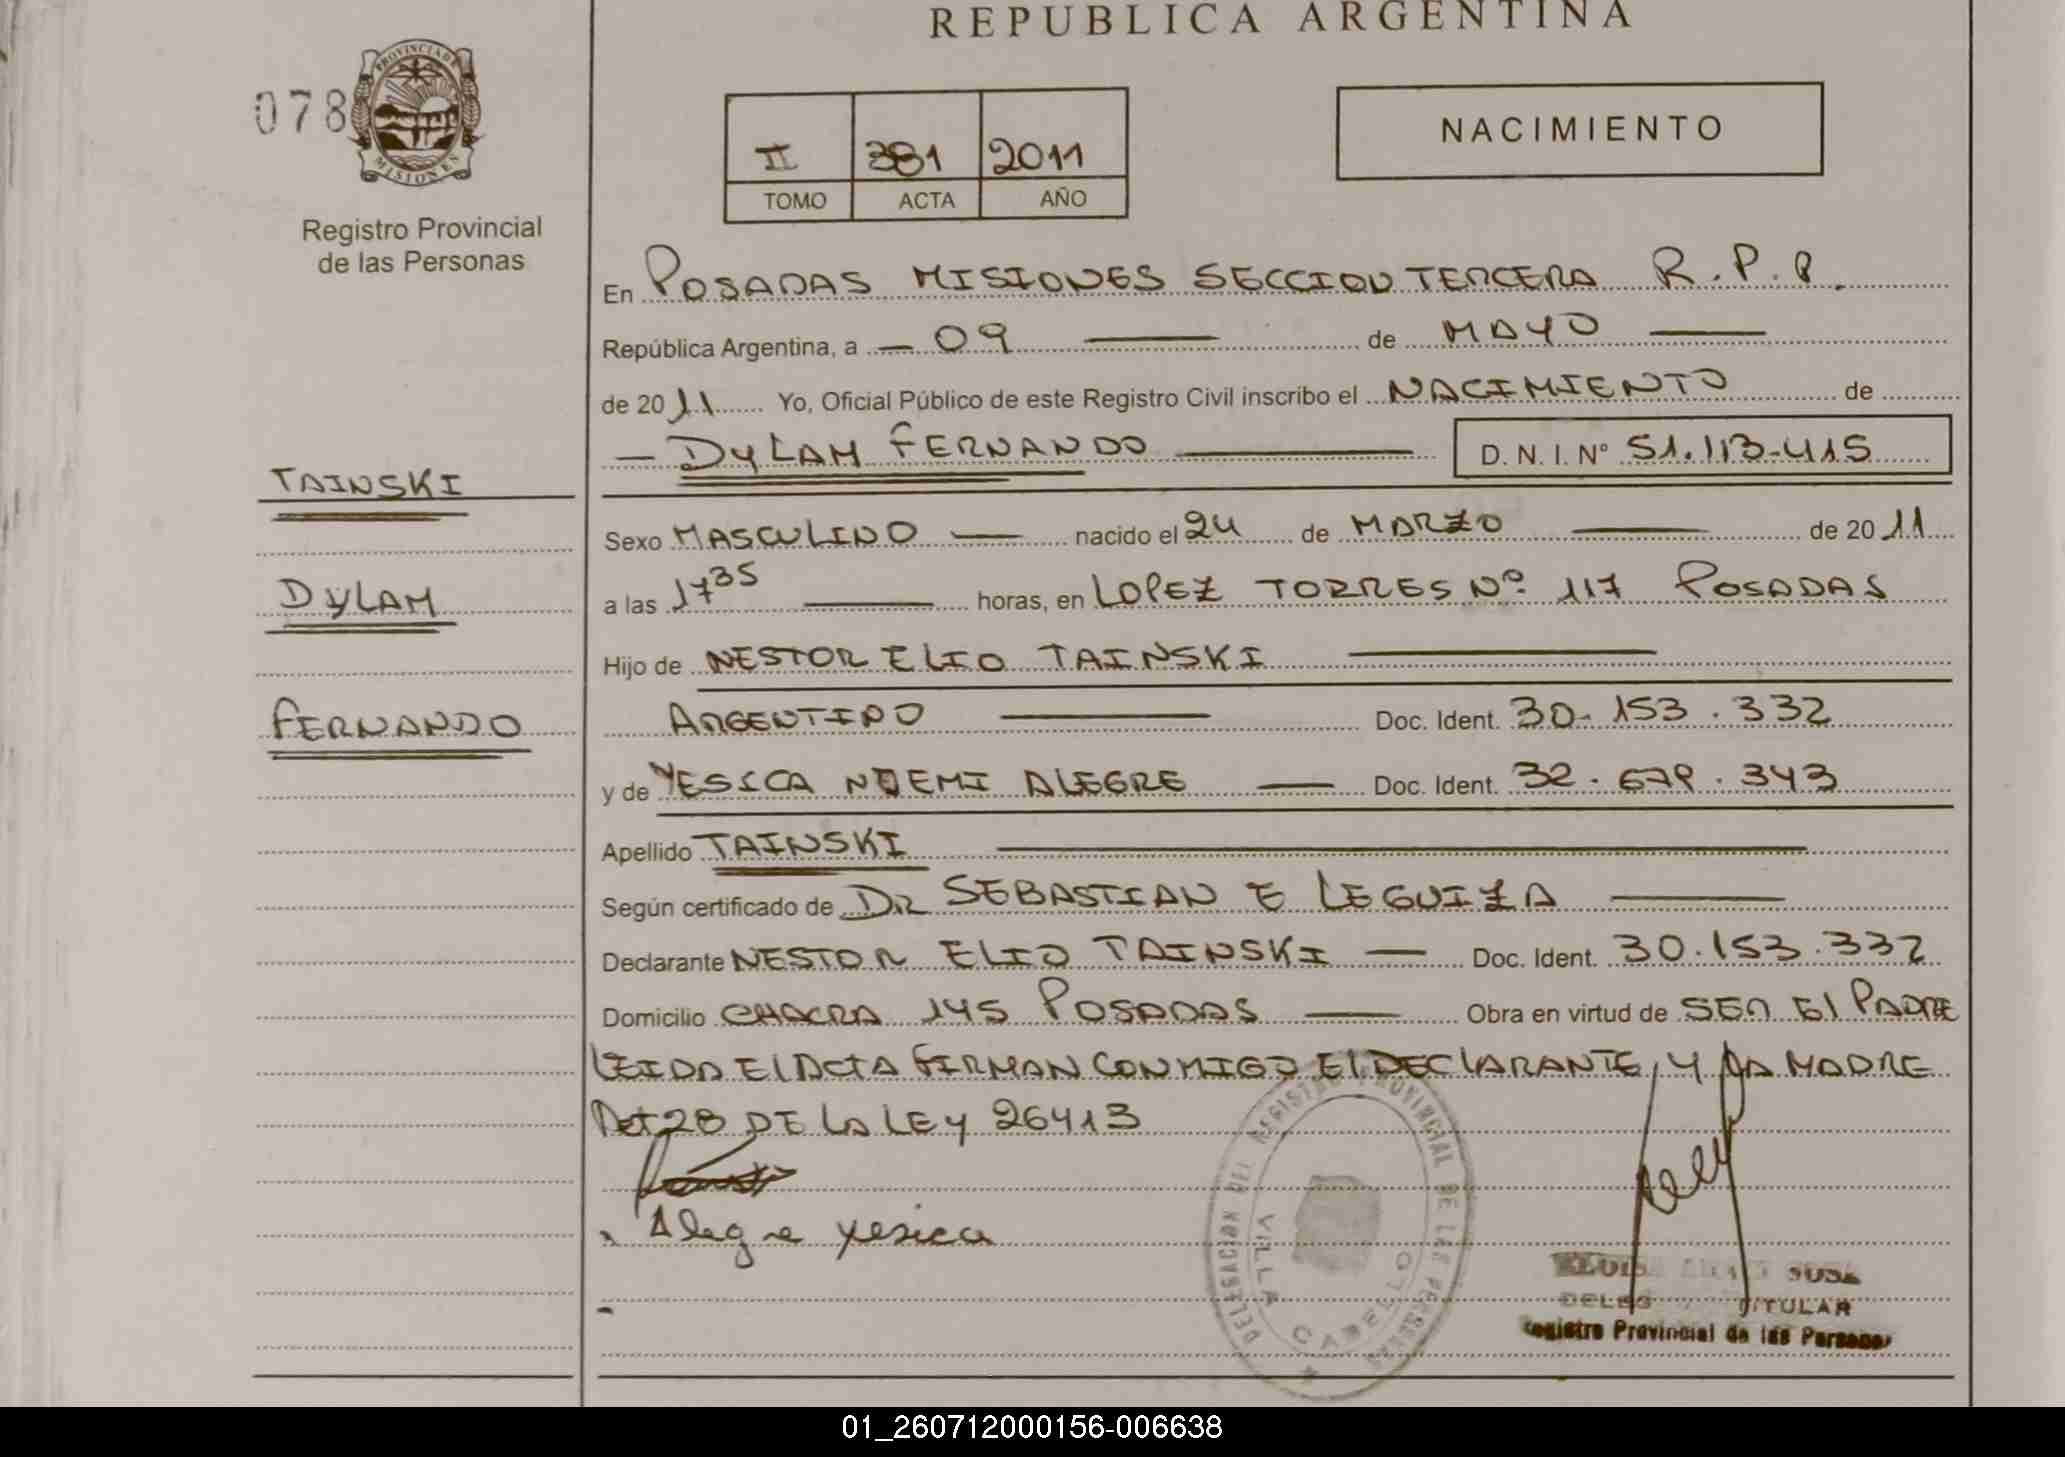 REPUBLICA ARGENTINA
078
PROVINCIA DE MISIONES
Registro Provincial
de las Personas
II 381 2011
TOMO ACTA AÑO
NACIMIENTO
En POSADAS MISIONES SECCION TERCERA R.P.P.
República Argentina, a 09 de MAYO
de 2011 Yo, Oficial Público de este Registro Civil inscribo el NACIMIENTO de
DYLAM FERNANDO D.N.I. Nº 51.113.415
TAINSKI
DYLAM
FERNANDO
Sexo MASCULINO nacido el 24 de MARZO de 2011
a las 17 35 horas, en LOPEZ TORRES Nº 117 POSADAS
Hijo de NESTOR ELIO TAINSKI
ARGENTINO Doc. Ident. 30.153.332
y de YESICA NOEMI ALEGRE Doc. Ident. 32.679.343
Apellido TAINSKI
Según certificado de DR SEBASTIAN E LEGUIZA
Declarante NESTOR ELIO TAINSKI Doc. Ident. 30.153.332
Domicilio CHACRA 145 POSADAS Obra en virtud de SER El PADRE
LEIDA El ACTA FIRMAN CONMIGO El DECLARANTE, Y LA MADRE
Art 28 DE LA LEY 26413
Alegre Yesica
DELEGACION DEL REGISTRO PROVINCIAL DE LAS PERSONAS
VILLA CABELLO
SOSA
TITULAR
Registro Provincial de las Personas
01_260712000156-006638